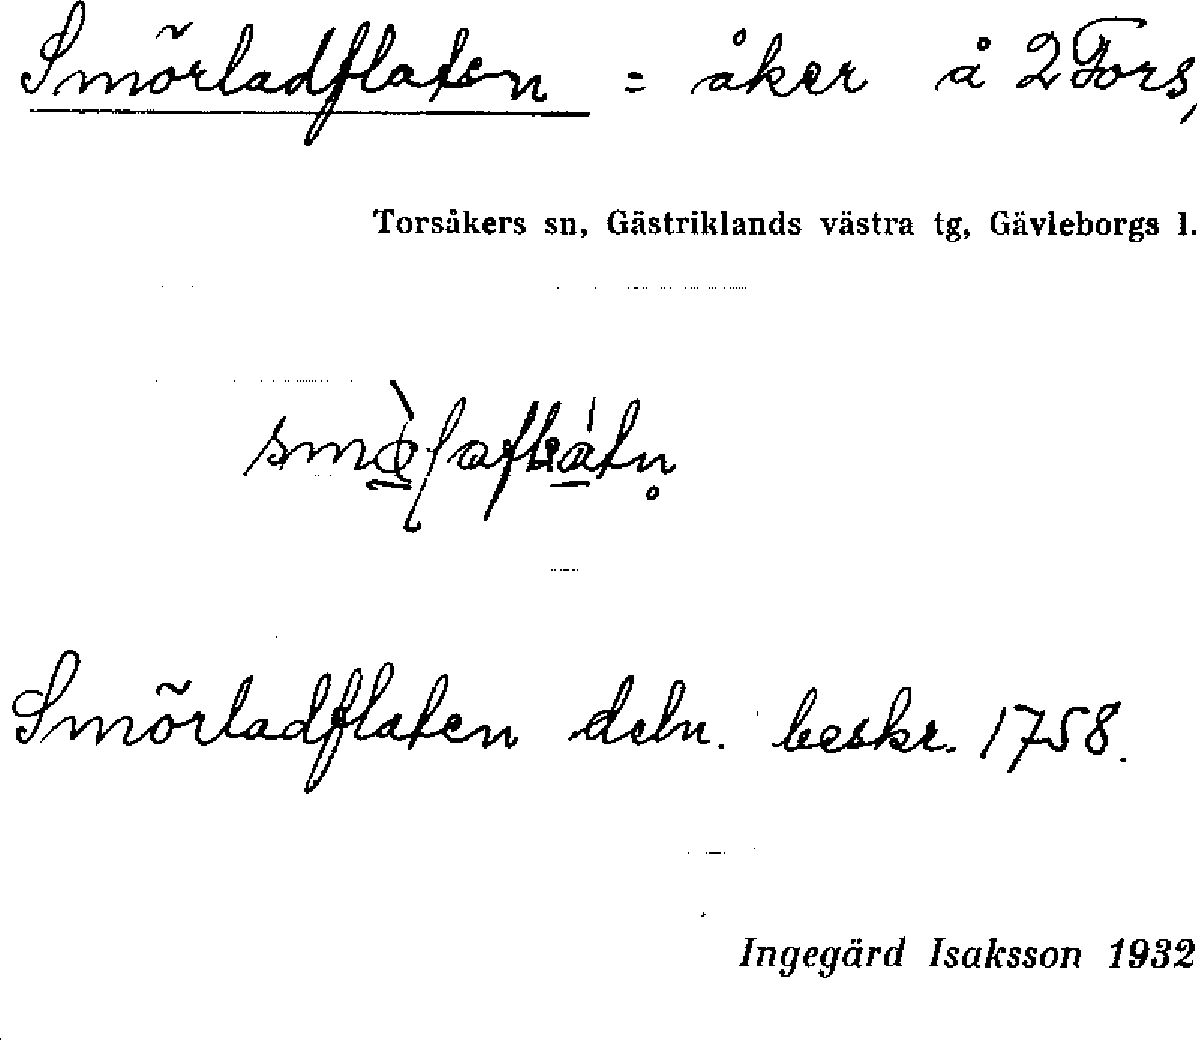 Smörladflaten = åker å 2 Fors,
Torsåkers sn, Gästriklands västra tg, Gävleborgs l.
Smörladflaten deln. beskr. 1758.
Ingegärd Isaksson 1932